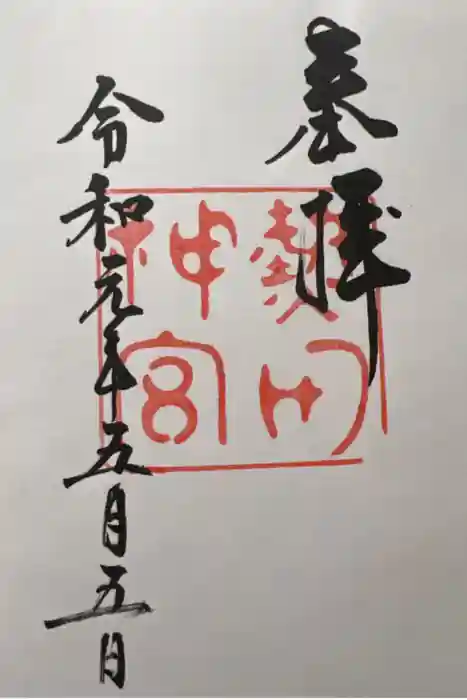 奉拝
熱田
神宮
令和元年五月五日